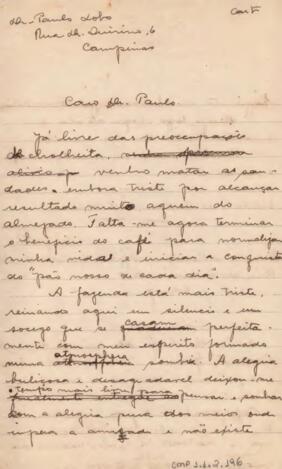 Dr. Paulo Lobo
Rua Dr. Quirino, 6
Campinas
Cart
Caro Dr. Paulo.
Já livre das preoccupações
de colheita, venho matar as sau-
dades, embora triste por alcançar
resultado muito aquem do
almejado. Falta-me agora terminar
o beneficio do café para normalizar
minha vida e iniciar a conquista
do "pão nosso de cada dia".
A fazenda está mais triste,
reinando aqui um silencio e um
socego que se casam perfeita-
mente com meu espirito formado
numa atmosphera sombria. A alegria
buliçosa e desagradavel deixou-me
e tenho mais tempo para pensar e sonhar
com a alegria pura dos meios onde
impera a amizade e não existe
CMP 1.1.2.196